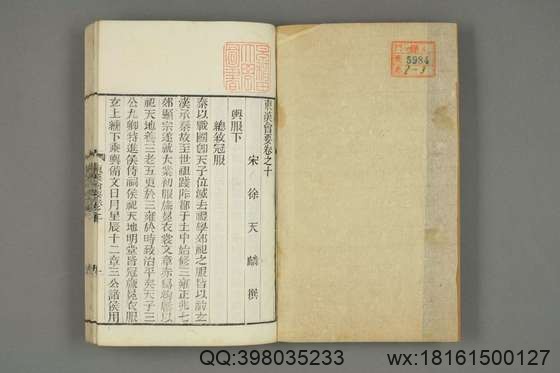 東漢會要卷之十
宋 徐 天 麟 撰
輿服下
總敘冠服
秦以戰國卽天子位減去禮學郊祀之服皆以袀玄
漢承秦故至世祖踐阼都于土中始修三雍正兆七
郊顯宗遂就大業初服旒冕衣裳文章赤舄絇屨以
祀天地養三老五更於三雍於時致治平矣天子三
公九卿特進侯侍祠侯祀天地明堂皆冠旒冕衣服
玄上纁下乘輿備文日月星辰十二章三公諸侯用
5984
QQ:398035233
wx:18161500127